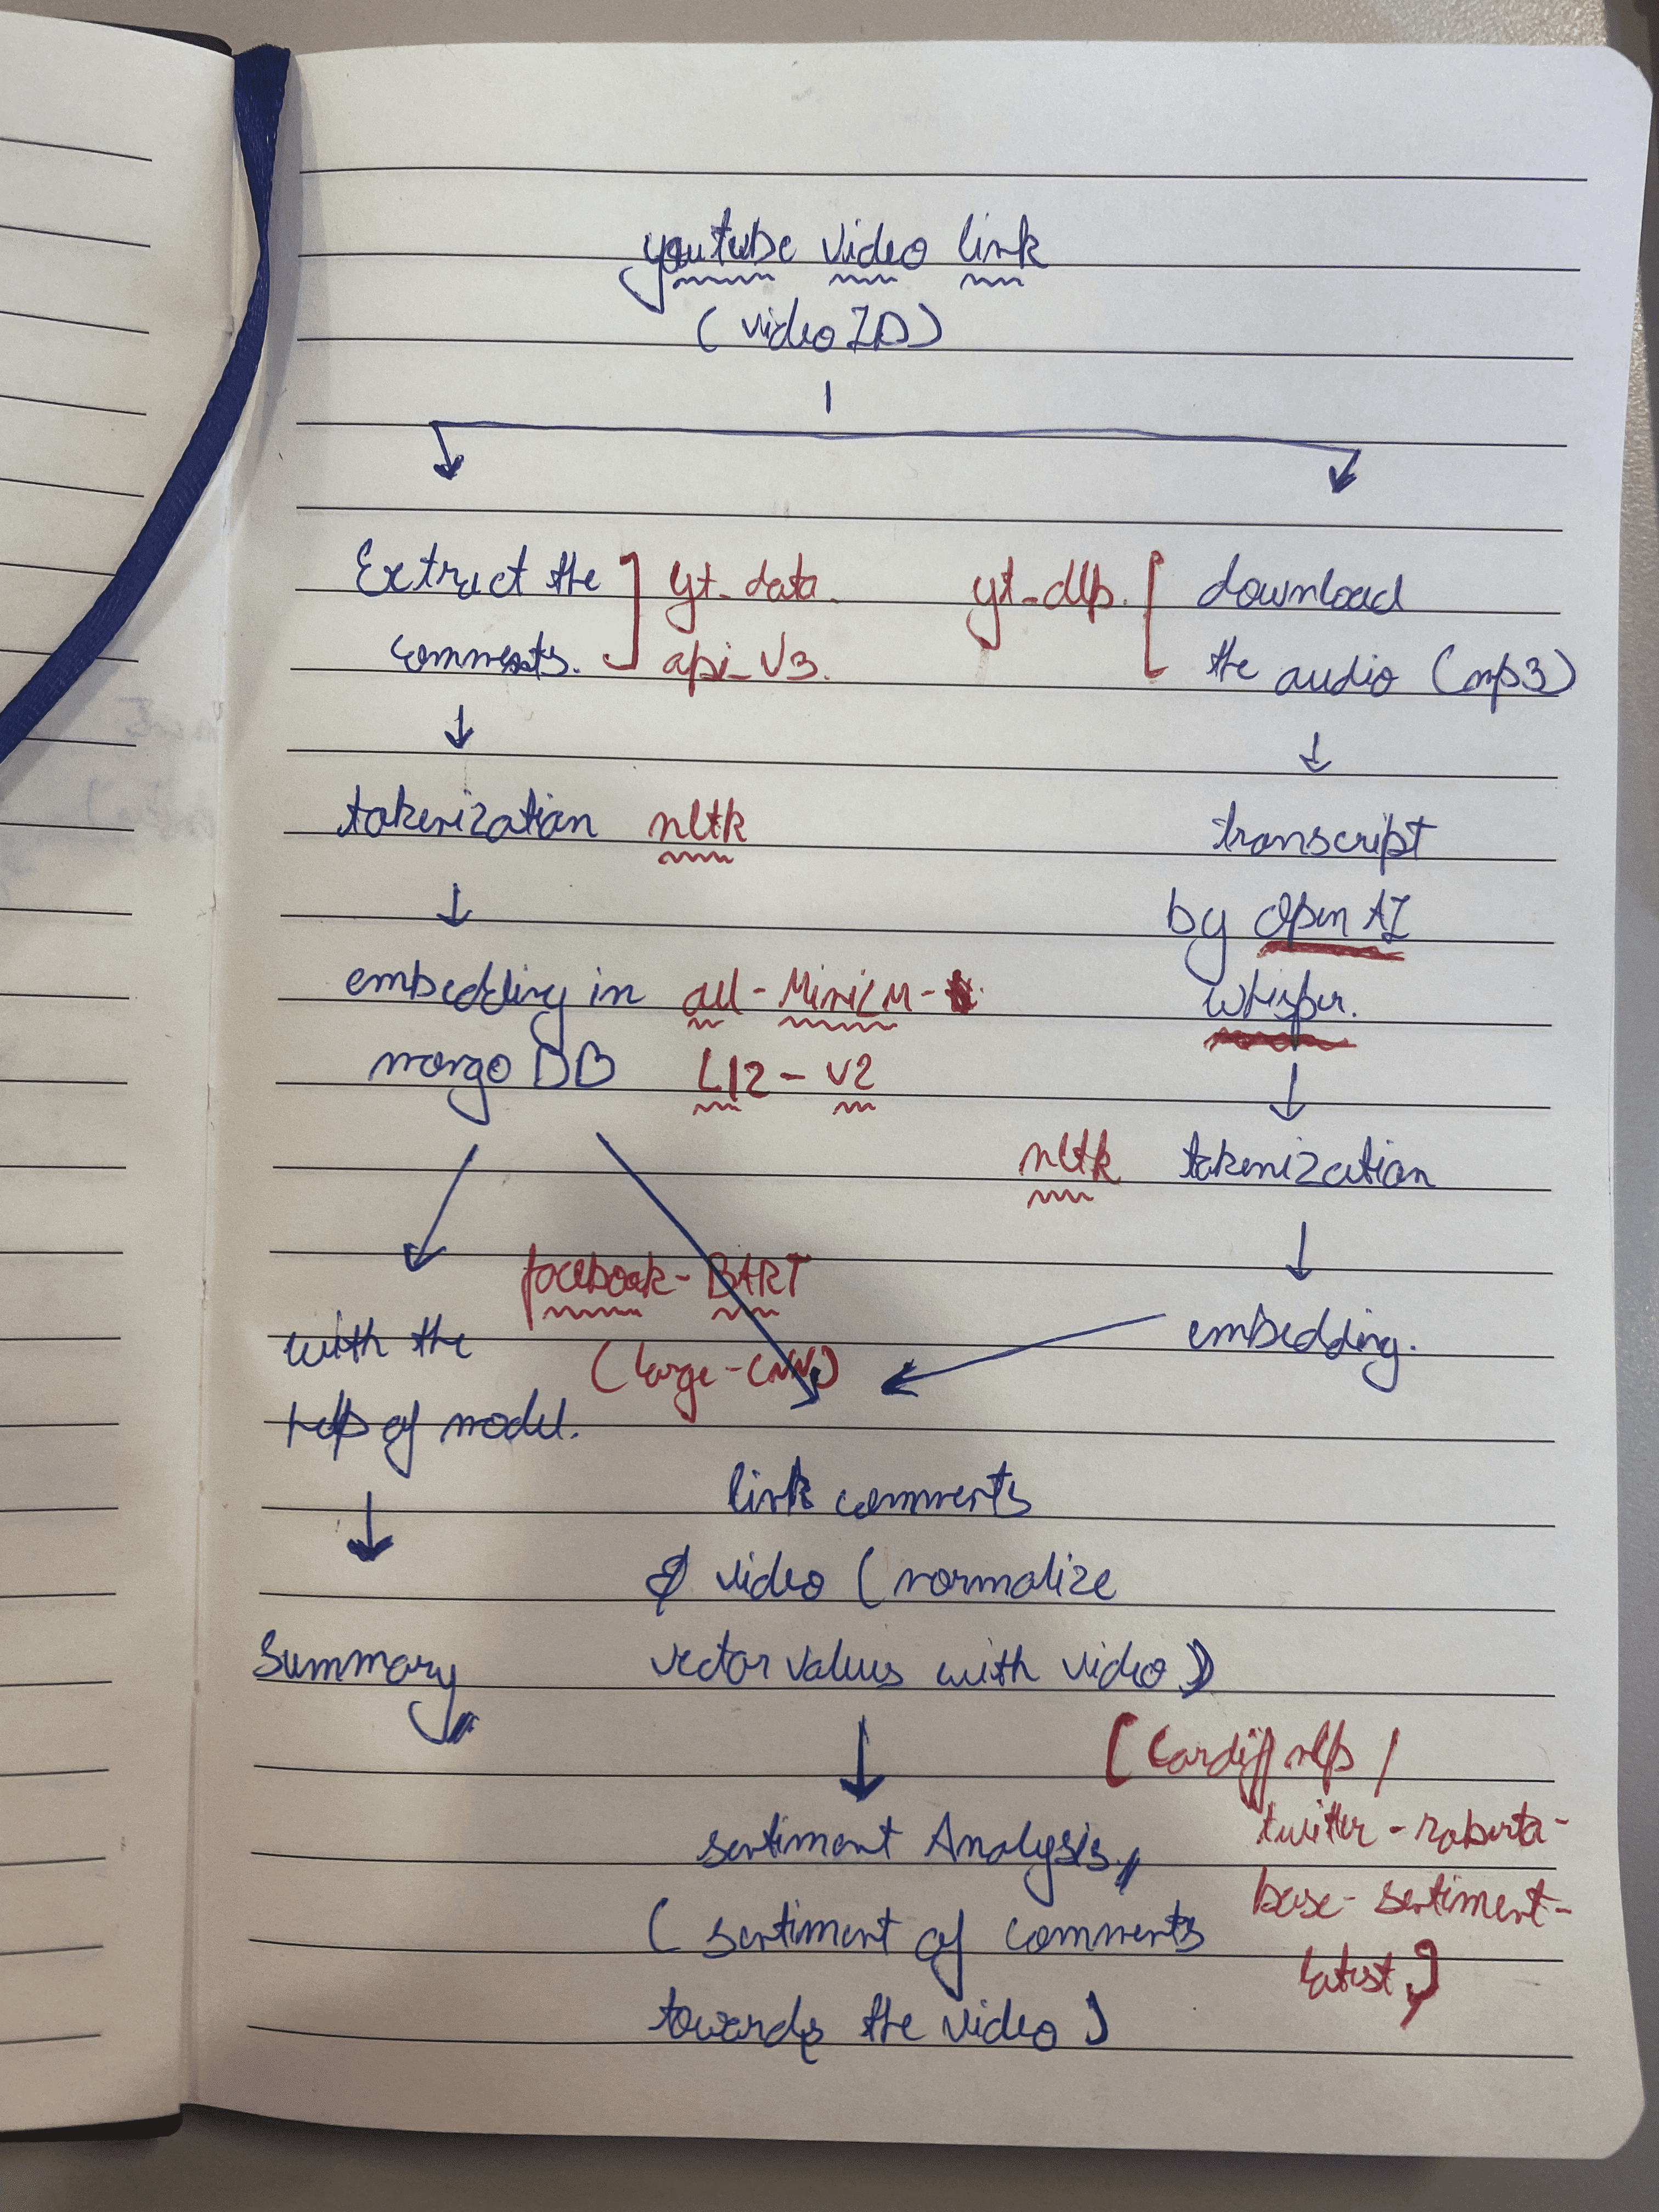 youtube video link
(video ID)
Extract the
comments.
yt_data
api_v3.
yt_dlp.
download
the audio (mp3)
tokenization nltk
transcript
by Open AI
Whisper.
embedding in all-MiniLM-
mongo DB L12-v2
nltk tokenization
facebook-BART
(large-CNN)
with the
help of model.
embedding.
link comments
& video (normalize
vector values with video)
Summary
[Cardiffnlp/
twitter-roberta-
base-sentiment-
latest]
sentiment Analysis
(sentiment of comments
towards the video)